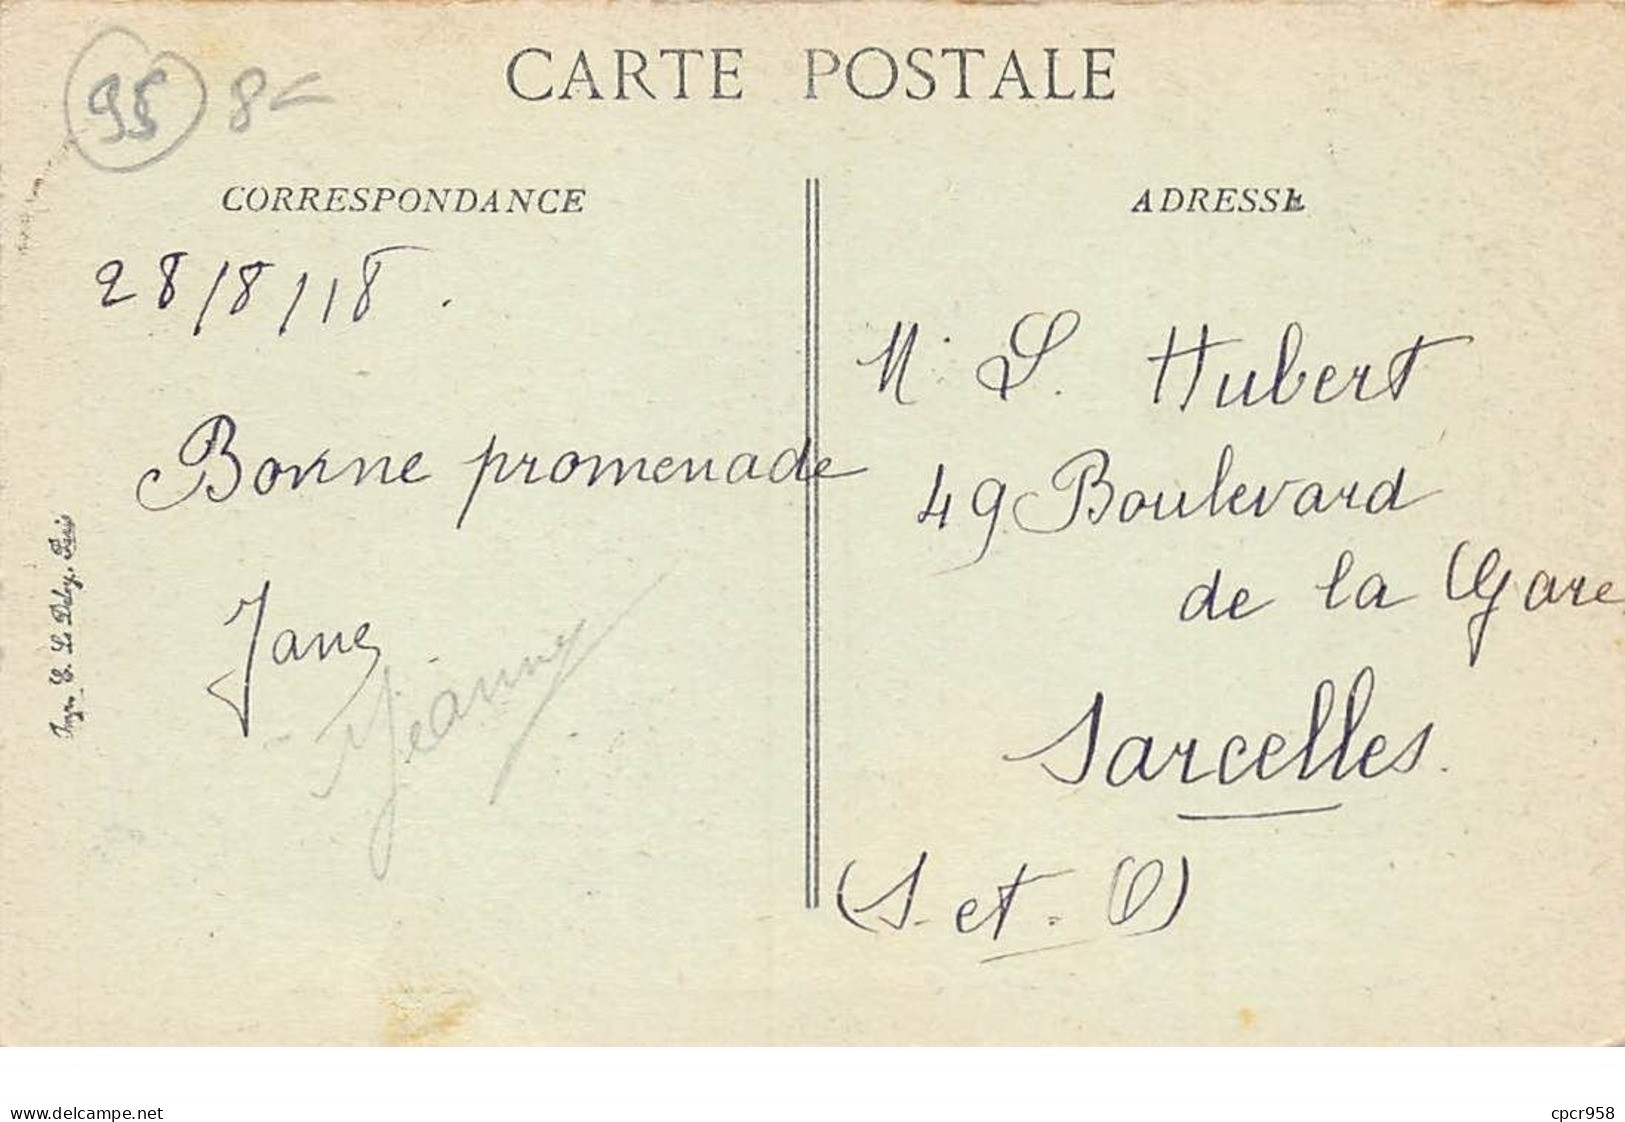 CARTE POSTALE
95 8
CORRESPONDANCE
28/8/18.
Bonne promenade
Jane
Jeanny
Imp. E. Le Deley, Paris
ADRESSE
M. L. Hubert
49 Boulevard
de la Gare
Sarcelles.
(S. et. O)
www.delcampe.net
cpcr958